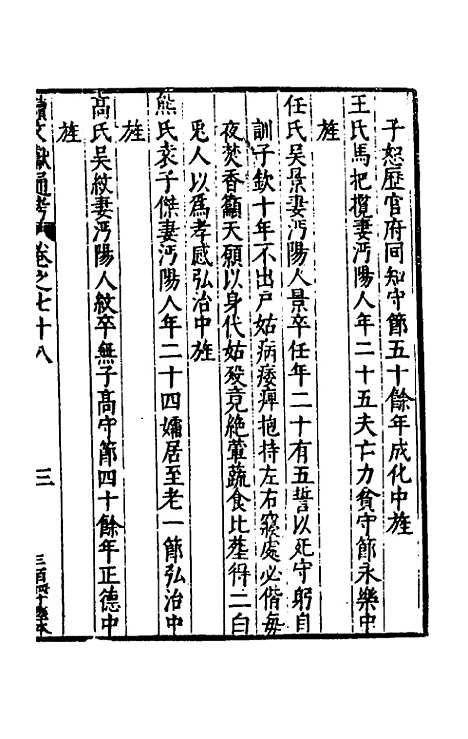 子恕歷官府同知守節五十餘年成化中旌
王氏馬把攬妻沔陽人年二十五夫亡力貧守節永樂中
旌
任氏吳景妻沔陽人景卒任年二十有五誓以死守躬自
訓子欽十年不出戶姑病痿痺抱持左右寢處必偕每
夜焚香籲天願以身代姑歿竟絕葷蔬食比葬得二白
兎人以爲孝感弘治中旌
熊氏袁子傑妻沔陽人年二十四孀居至老一節弘治中
旌
高氏吳紋妻沔陽人紋卒無子高守節四十餘年正德中
旌
續文獻通考 卷之七十八 三